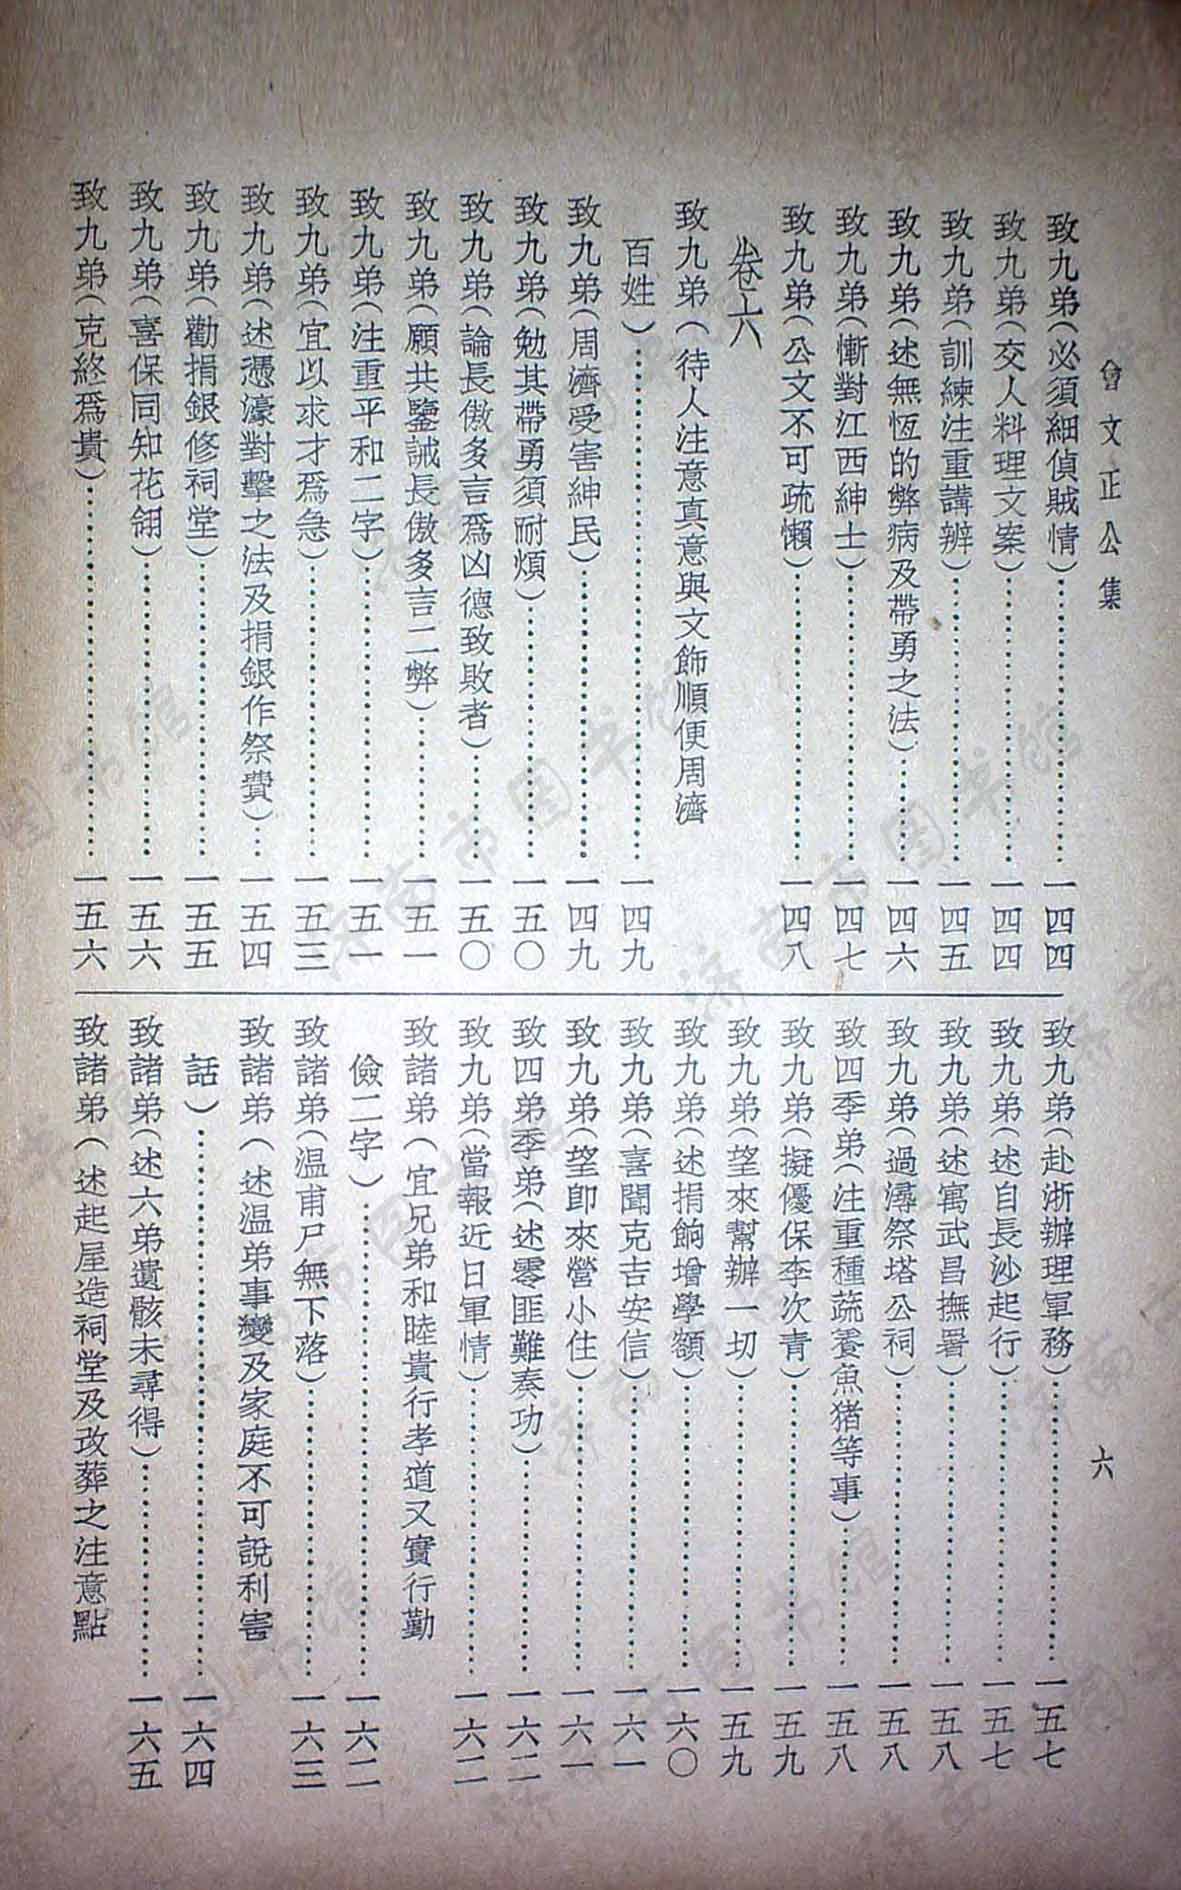 曾文正公集
六
致九弟(必須細偵賊情)……一四四
致九弟(交人料理文案)……一四四
致九弟(訓練注重講辦)……一四五
致九弟(述無恆的弊病及帶勇之法)……一四六
致九弟(慚對江西紳士)……一四七
致九弟(公文不可疏懶)……一四八
卷六
致九弟(待人注意真意與文飾順便周濟
百姓)……一四九
致九弟(周濟受害紳民)……一四九
致九弟(勉其帶勇須耐煩)……一五〇
致九弟(論長傲多言爲凶德致敗者)……一五〇
致九弟(願共鑒誡長傲多言二弊)……一五一
致九弟(注重平和二字)……一五一
致九弟(宜以求才爲急)……一五三
致九弟(述憑濠對擊之法及捐銀作祭費)……一五四
致九弟(勸捐銀修祠堂)……一五五
致九弟(喜保同知花翎)……一五六
致九弟(克終爲貴)……一五六
致九弟(赴浙辦理軍務)……一五七
致九弟(述自長沙起行)……一五七
致九弟(述寓武昌撫署)……一五八
致九弟(過潯祭塔公祠)……一五八
致四季弟(注重種蔬養魚猪等事)……一五八
致九弟(擬優保李次青)……一五九
致九弟(望來幫辦一切)……一五九
致九弟(述捐餉增學額)……一六〇
致九弟(喜聞克吉安信)……一六一
致九弟(望卽來營小住)……一六一
致四季弟(述零匪難奏功)……一六二
致九弟(當報近日軍情)……一六二
致諸弟(宜兄弟和睦貴行孝道又實行勤
儉二字)……一六二
致諸弟(温甫尸無下落)……一六三
致諸弟(述温弟事變及家庭不可說利害
話)……一六四
致諸弟(述六弟遺骸未尋得)……一六五
致諸弟(述起屋造祠堂及改葬之注意點
济南市图书馆